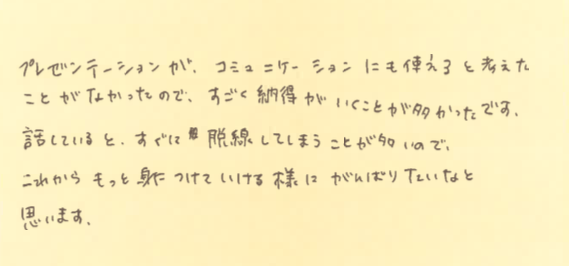 プレゼンテーションが、コミュニケーションにも使えると考えた
ことがなかったので、すごく納得がいくことが多かったです。
話していると、すぐに脱線してしまうことが多いので、
これからもっと身につけていける様にがんばりたいなと
思います。